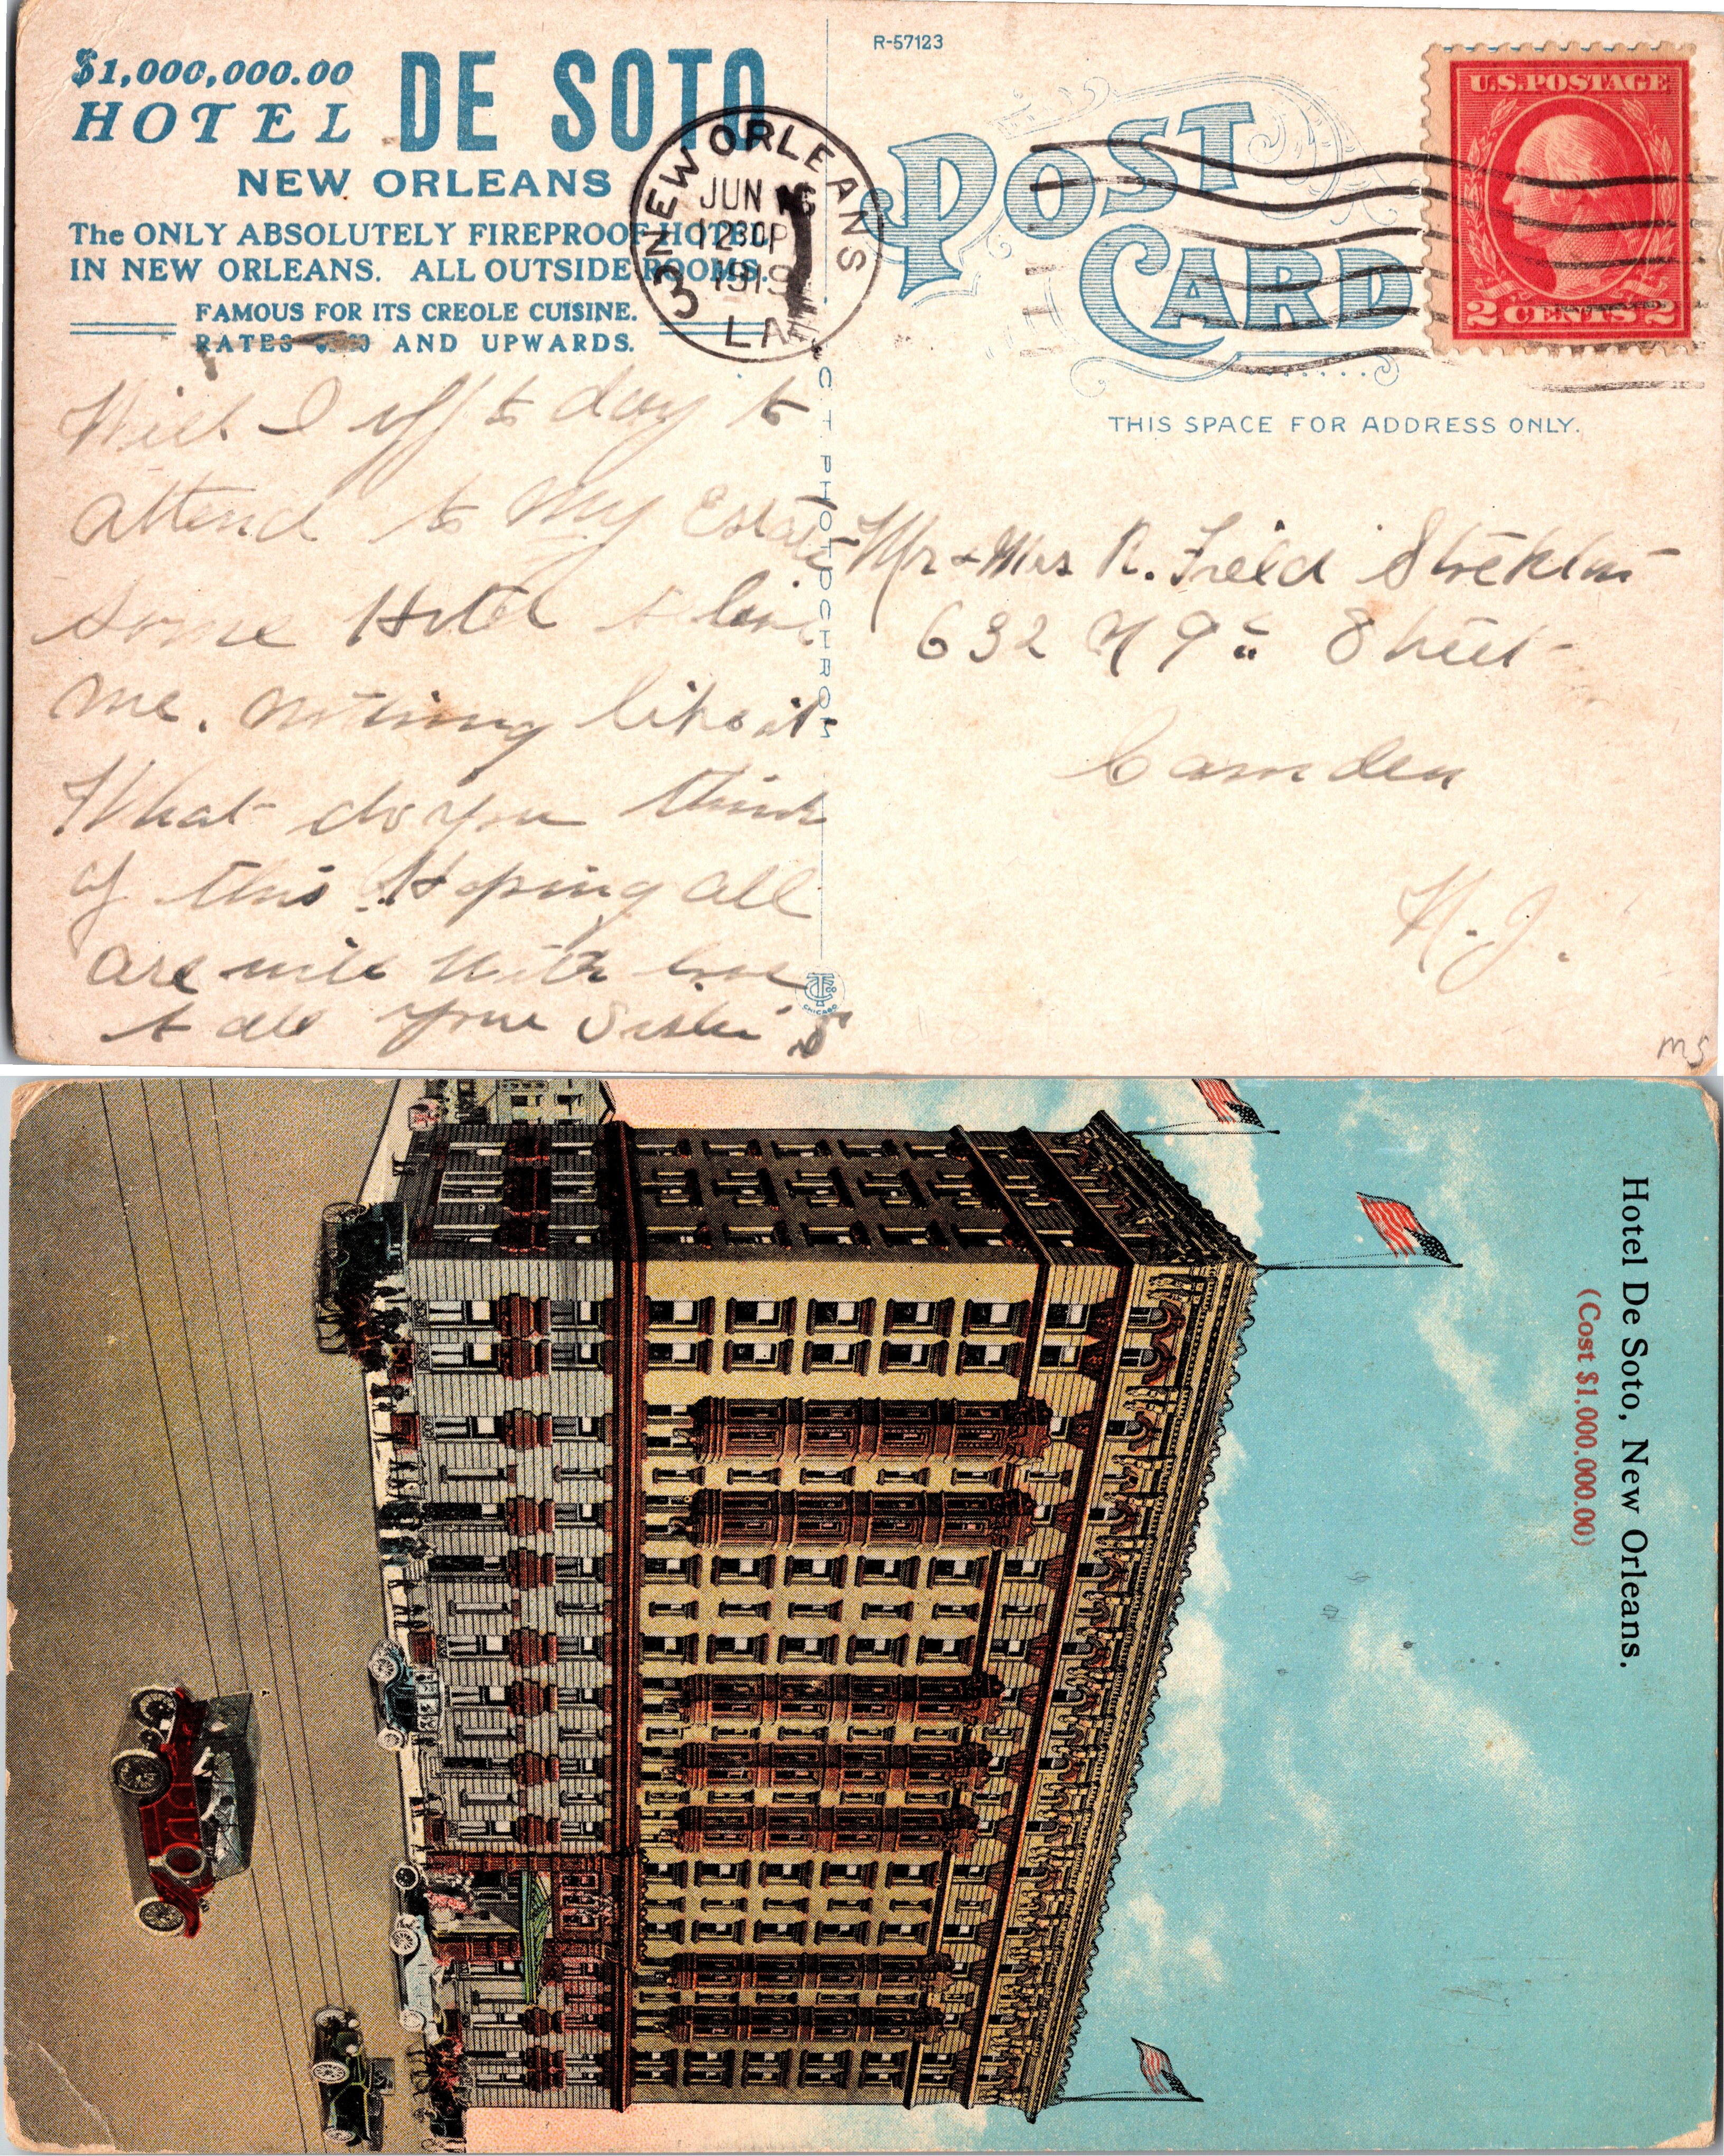 $1,000,000.00
HOTEL DE SOTO
NEW ORLEANS
The ONLY ABSOLUTELY FIREPROOF HOTEL
IN NEW ORLEANS. ALL OUTSIDE ROOMS.
FAMOUS FOR ITS CREOLE CUISINE.
RATES AND UPWARDS.
NEW ORLEANS
JUN 16
1230P
1919
LA
3
R-57123
POST
CARD
U.S. POSTAGE
2 CENTS 2
THIS SPACE FOR ADDRESS ONLY.
Well I off to day to
attend to my Estate
some Hotel to
me. nothing like it
What do you think
of this. Hoping all
are well with love
to all your Sister
C. T. PHOTOCHROM
CHICAGO
Mr & Mrs R. Field Stockton
632 N 9th Street
Camden
N. J.
ms
Hotel De Soto, New Orleans.
(Cost $1,000,000.00)